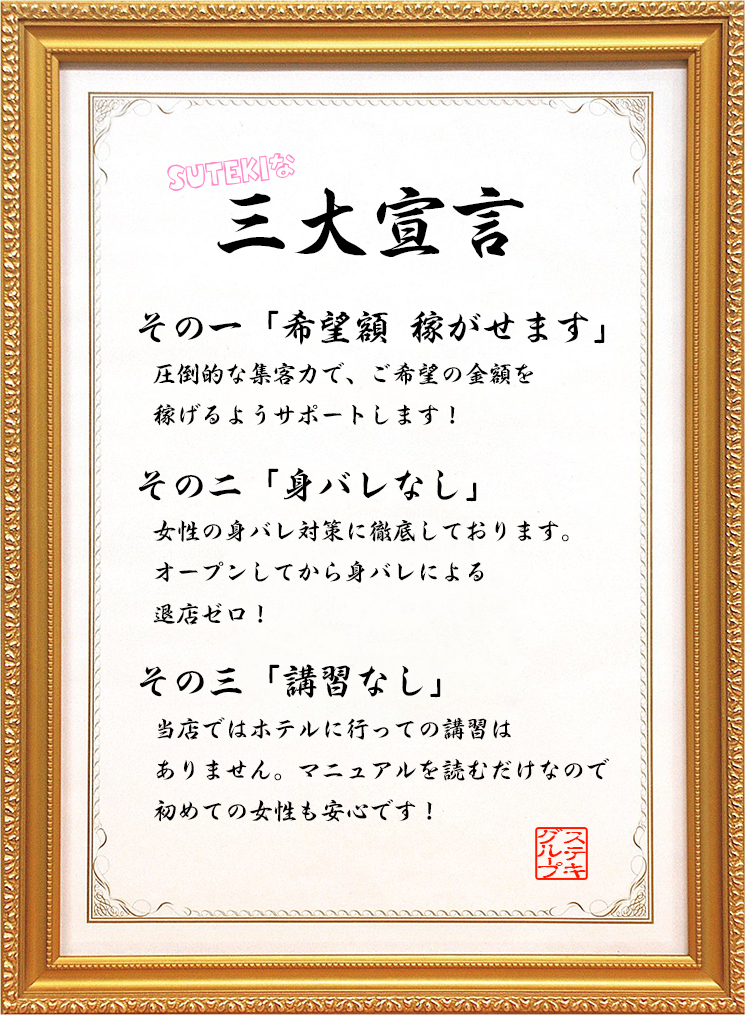 SUTEKIな
三大宣言
その一「希望額 稼がせます」
圧倒的な集客力で、ご希望の金額を
稼げるようサポートします！
その二「身バレなし」
女性の身バレ対策に徹底しております。
オープンしてから身バレによる
退店ゼロ！
その三「講習なし」
当店ではホテルに行っての講習は
ありません。マニュアルを読むだけなので
初めての女性も安心です！
ステキ
グループ